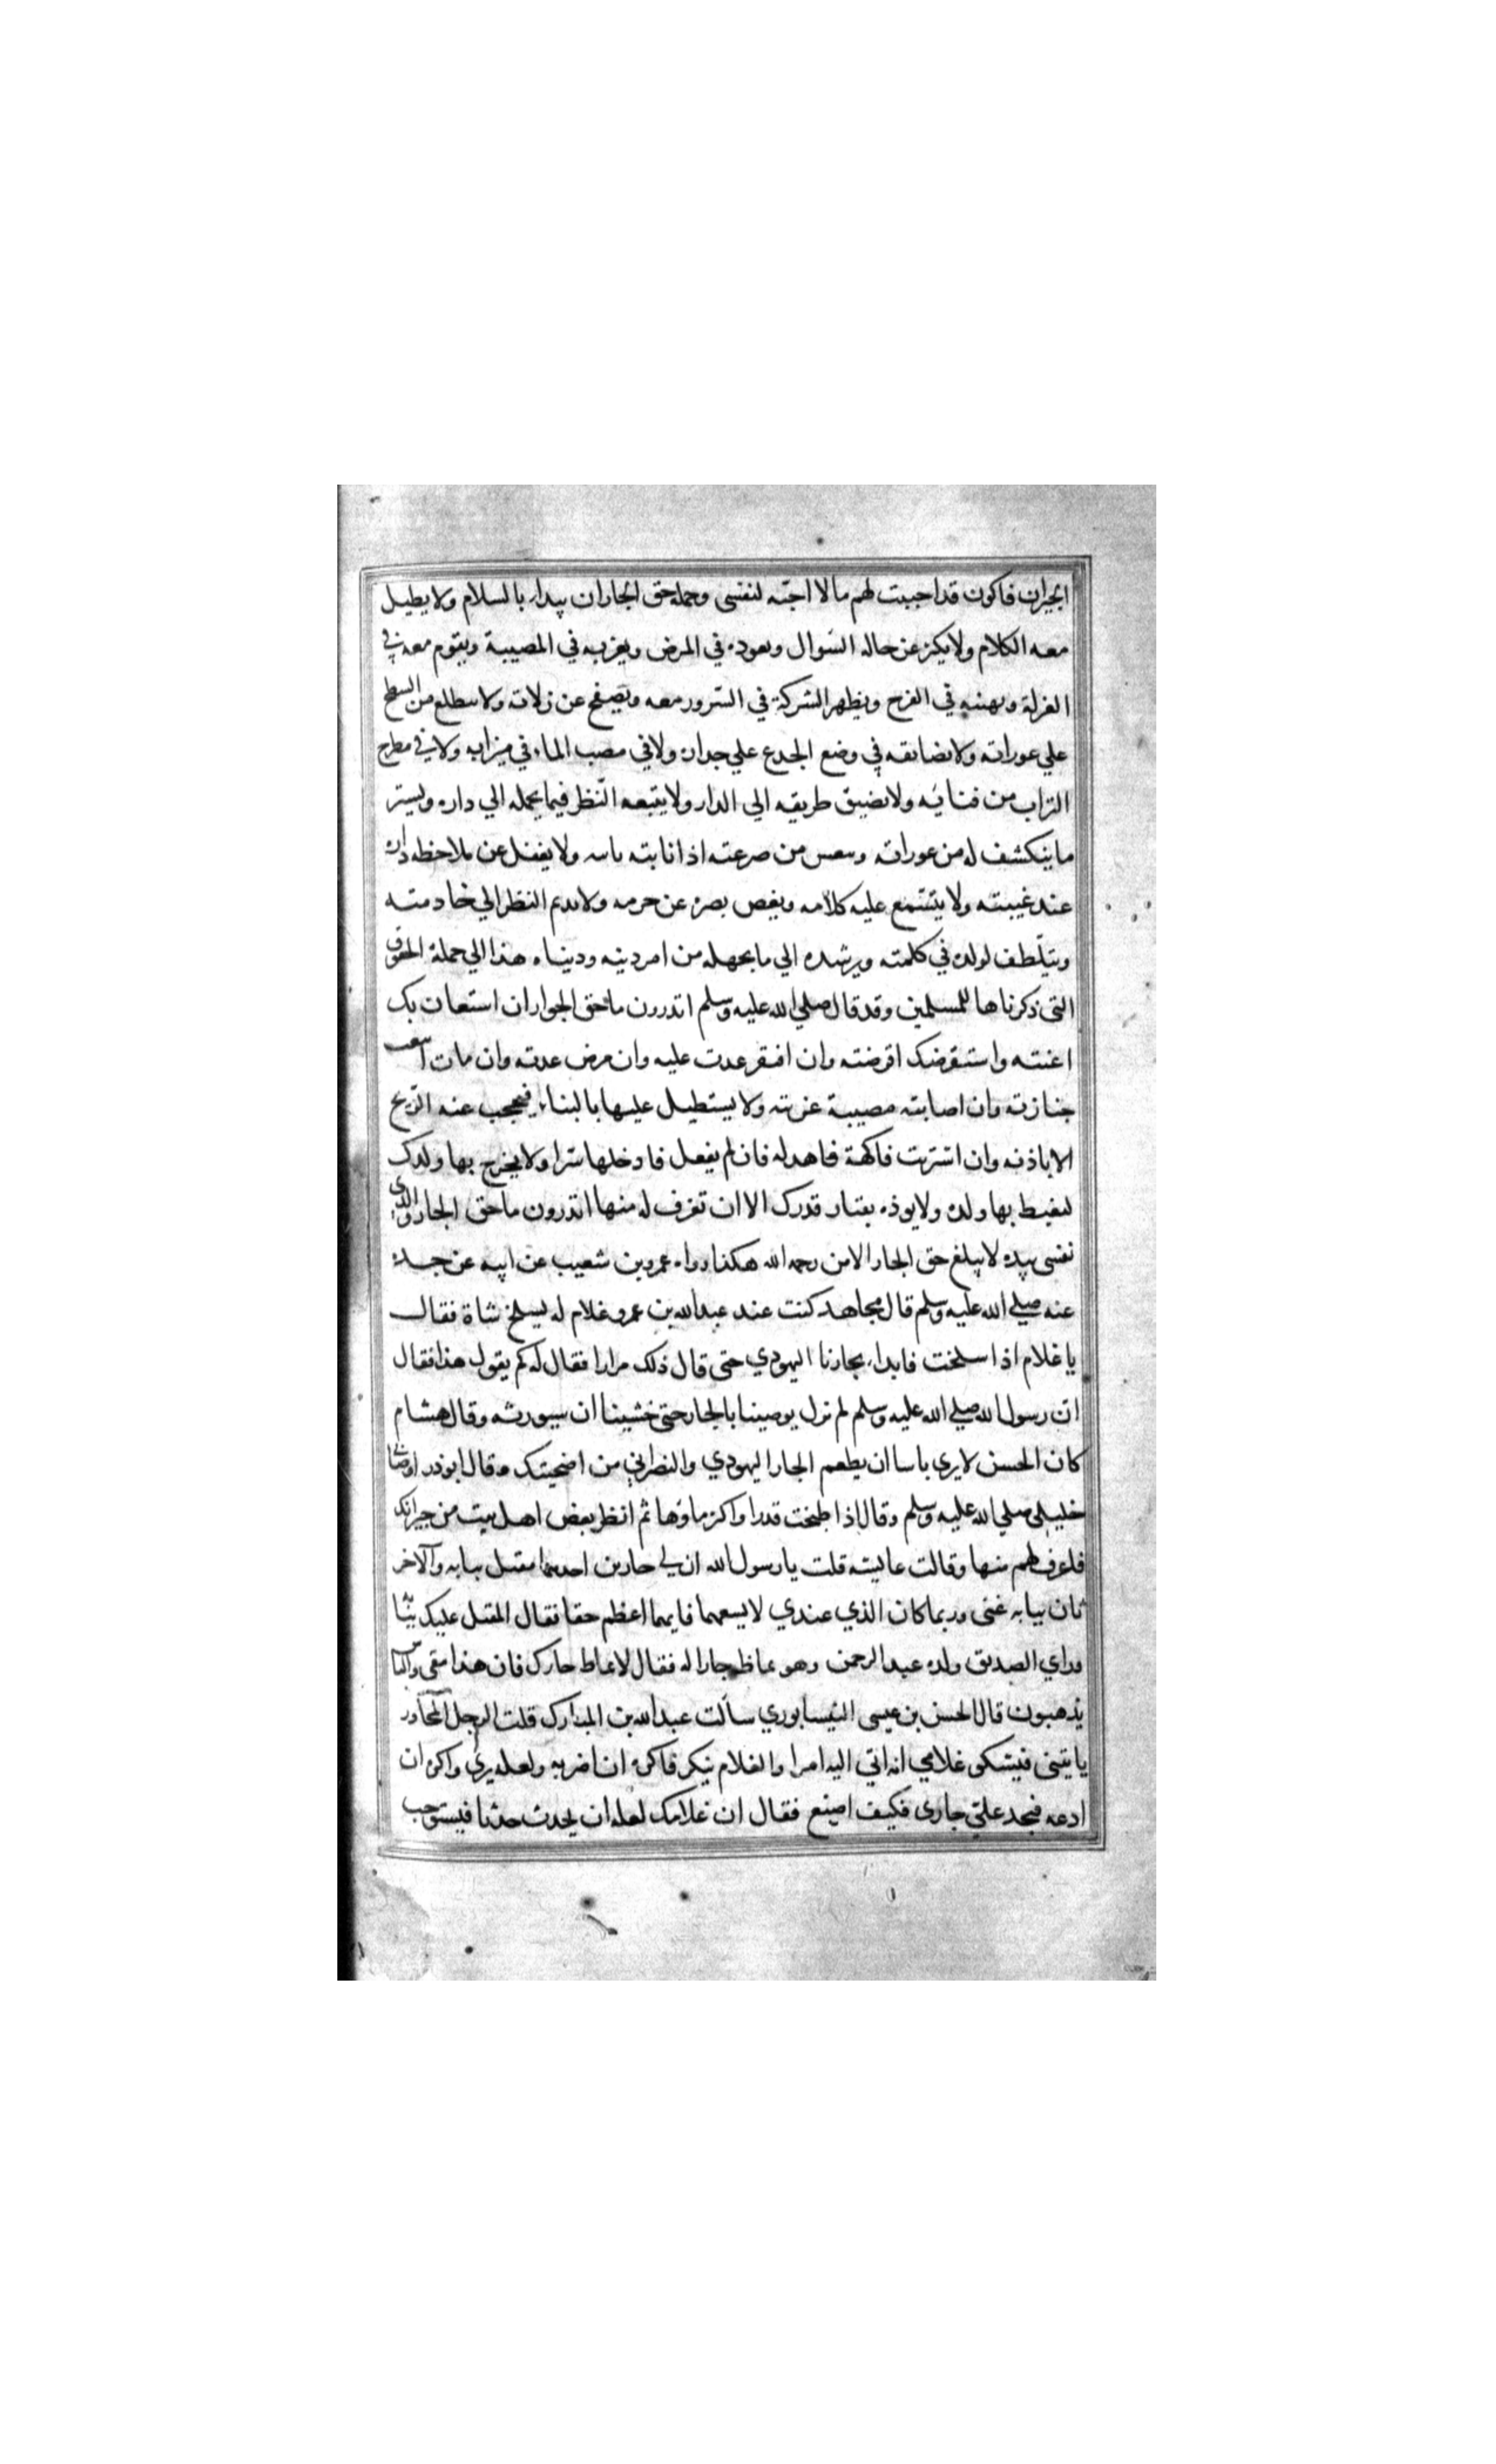 الجيران فاكون قد احببت لهم مالا احبّه لنفسى وجملة حق الجار ان يبدا بالسلام ولا يطيل
معه الكلام ولا يكثر عن حاله السّوال ويعوده في المرض ويعزيه في المصيبة ويقوم معه في
العزلة ويهنيه في الفرح ويظهر الشركة في السّرور معه ويصفح عن زلاته ولا يتطلع من السطح
علي عوراته ولا يضايقه في وضع الجدع علي جداره ولا في مصب الماء في ميزابه ولا في مطرح
التراب من فنائه ولا يضيق طريقه الي الدار ولا يتبعه النّظر فيما يحمله الي داره ويستر
ما ينكشف له من عوراته وينعش من صرعته اذا نابته نايبه ولا يغفل عن ملاحظه داره
عند غيبته ولا يتسّمع عليه كلامه ويغض بصره عن حرمه ولا يديم النظر الي خادمته
ويتلّطف لولده في كلمته ويرشده الي ما يجهله من امر دينه ودنياه هذا الي جملة الحقوق
التى ذكرناها للمسلمين وقد قال صلي الله عليه وسلم اتدرون ما حق الجوار ان استعان بك
اعنته واستقرضك اقرضته وان افتقر عدت عليه وان مرض عدته وان مات
جنازته وان اصابته مصيبة عزيته ولا يستطيل عليها بالبناء فيحجب عنه الرّيح
الا باذنه وان اشتريت فاكهة فاهد له فان لم يفعل فادخلها سّرا ولا يخرج بها ولدك
ليغيط بها ولده ولا يوذه بقتار قدرك الا ان تغرف له منها اتدرون ما حق الجار والذي
نفسى بيده لا يبلغ حق الجار الا من رحمه الله هكذا رواه عمرو بن شعيب عن ابيه عن جده
عنه صلي الله عليه وسلم قال مجاهد كنت عند عبد الله بن عمر وغلام له يسلخ شاة فقال
يا غلام اذا سلخت فابداء بجارنا اليهودي حتى قال ذلك مرارا فقال له كم يقول هذا فقال
ان رسول الله صلي الله عليه وسلم لم نزل يوصينا بالجار حتى خشينا ان سيورثه وقال هشام
كان الحسن لا يري باسا ان يطعم الجار اليهودي والنصراني من اضحيتك وقال ابو ذر اوصانى
خليلي صلي الله عليه وسلم وقال اذا طبخت قدرا واكثر ماؤها ثم انظر بعض اهل بيت من جيرانك
فاغرف لهم منها وقالت عايشه قلت يا رسول الله ان لي جارين احدهما مقبل ببابه والآخر
نان ببابه عنى وربما كان الذي عندي لا يسعهما فايهما اعظم حقا فقال المقبل عليك ببابه
وراي الصديق ولده عبد الرحمن وهو يماظ جارا له فقال لا تماظ جارك فان هذا يبقى والناس
يذهبون قال الحسن بن عيسى النيسابوري سألت عبد الله بن المبارك قلت الرجل المجاور
ياتينى فيشكى غلامي انه اتي اليه امرا والغلام ينكر فاكره ان اضربه ولعله بري واكره ان
ادعه فيجد علي جارى فكيف اصنع فقال ان غلامك لعله ان يحدث حدثا فيستوجب